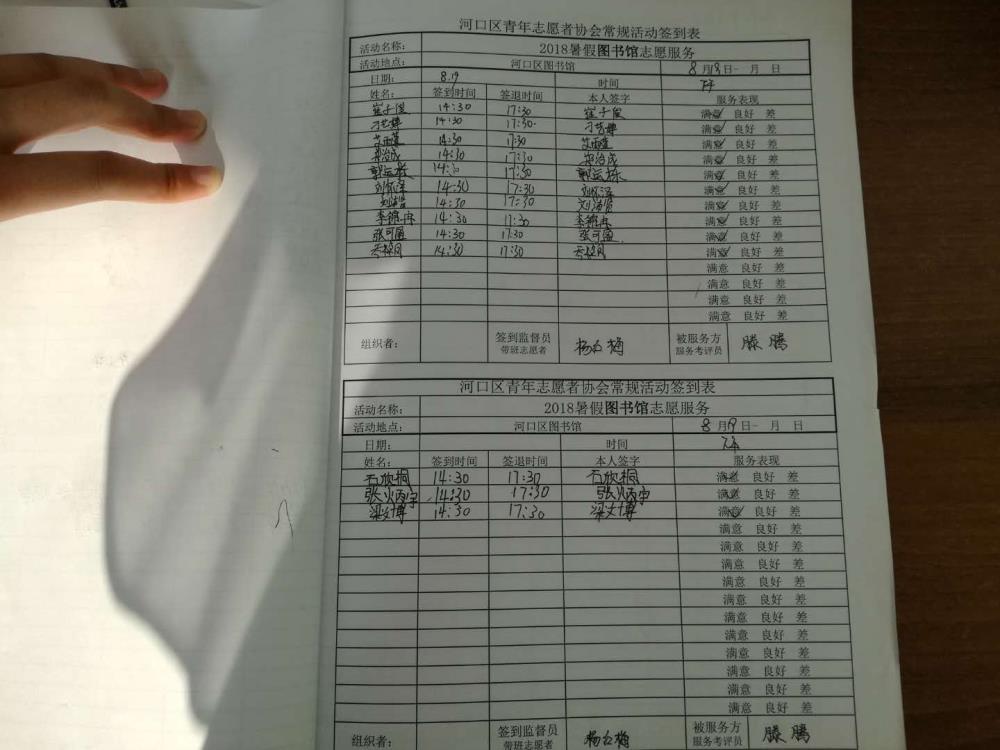 河口区青年志愿者协会常规活动签到表
活动名称： 2018暑假图书馆志愿服务
活动地点： 河口区图书馆 8月19日- 月 日
日期： 8.19 时间 下午
姓名： 签到时间 签退时间 本人签字 服务表现
崔子俊 14:30 17:30 崔子俊 满意 良好 差
14:30 17:30 满意 良好 差
14:30 17:30 满意 良好 差
14:30 17:30 满意 良好 差
郭运栋 14:30 17:30 郭运栋 满意 良好 差
14:30 17:30 满意 良好 差
14:30 17:30 满意 良好 差
李锦冉 14:30 17:30 李锦冉 满意 良好 差
张可盈 14:30 17:30 张可盈 满意 良好 差
14:30 17:30 满意 良好 差
满意 良好 差
满意 良好 差
满意 良好 差
满意 良好 差
组织者： 签到监督员 被服务方 滕腾
带班志愿者 服务考评员
河口区青年志愿者协会常规活动签到表
活动名称： 2018暑假图书馆志愿服务
活动地点： 河口区图书馆 8月19日- 月 日
日期： 时间 下午
姓名： 签到时间 签退时间 本人签字 服务表现
石欣桐 14:30 17:30 石欣桐 满意 良好 差
张炳宇 14:30 17:30 张炳宇 满意 良好 差
梁文博 14:30 17:30 梁文博 满意 良好 差
满意 良好 差
满意 良好 差
满意 良好 差
满意 良好 差
满意 良好 差
满意 良好 差
满意 良好 差
满意 良好 差
满意 良好 差
满意 良好 差
满意 良好 差
组织者： 签到监督员 被服务方 滕腾
带班志愿者 服务考评员